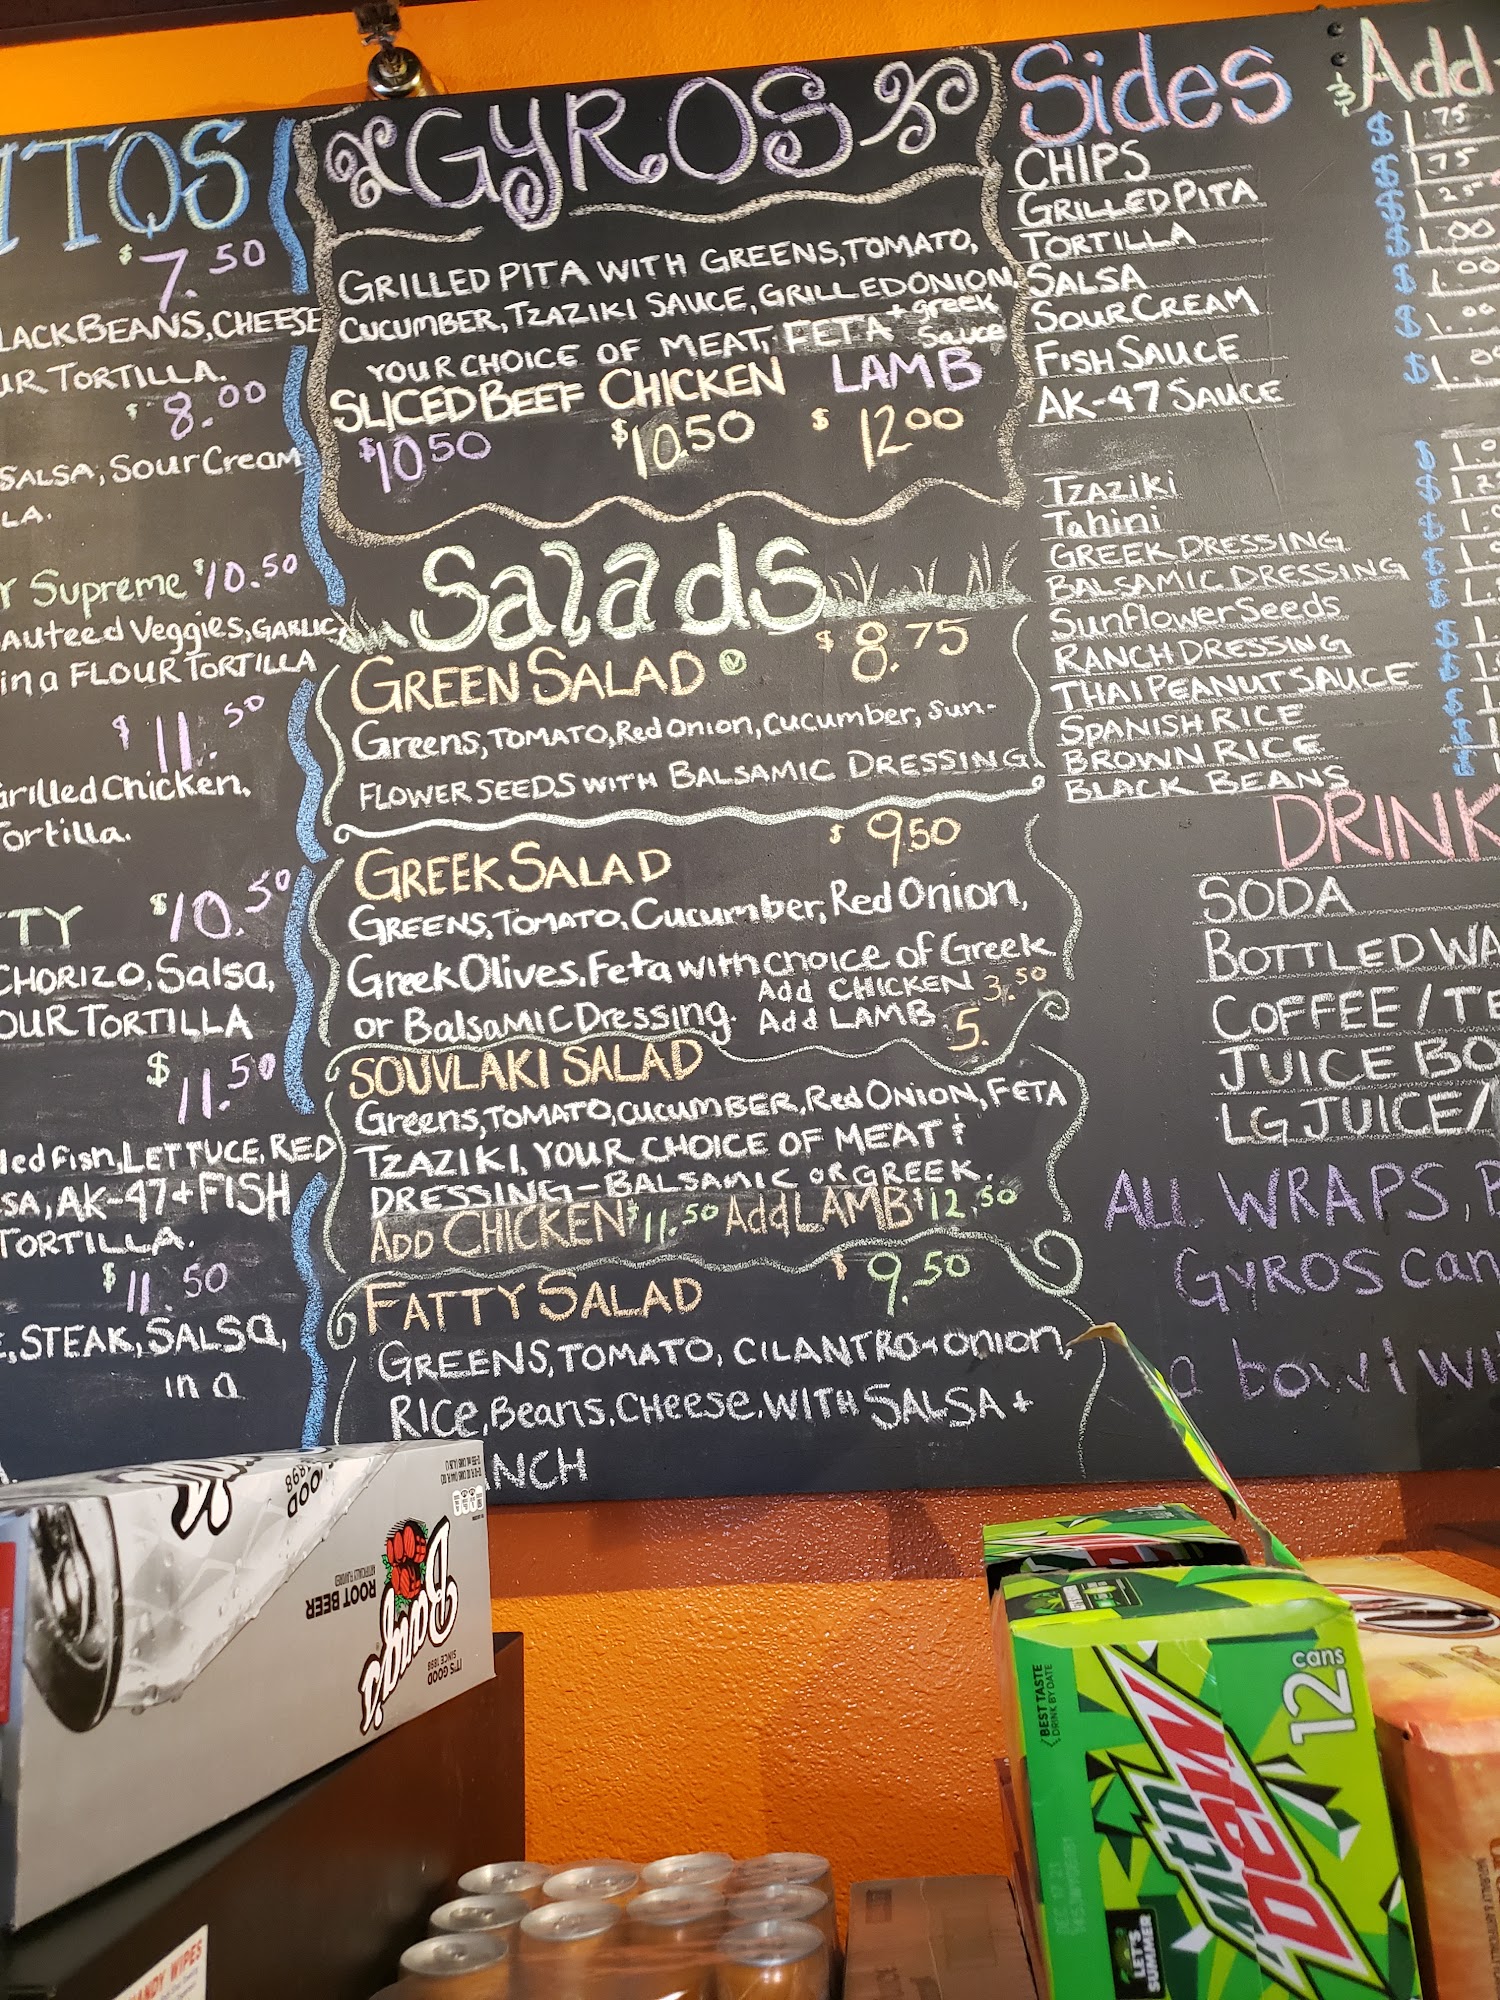 ITOS
$7.50
LACK BEANS, CHEESE
UR TORTILLA.
$8.00
SALSA, SOUR CREAM
LA.
Y Supreme $10.50
auteed Veggies, GARLIC
in a FLOUR TORTILLA
$11.50
Grilled Chicken,
Tortilla.
TTY $10.50
CHORIZO, Salsa,
OUR TORTILLA
$11.50
led Fish, LETTUCE, RED
SA, AK-47 + FISH
TORTILLA.
$11.50
E, STEAK, SALSA,
in a
GYROS
GRILLED PITA WITH GREENS, TOMATO,
CUCUMBER, TZAZIKI SAUCE, GRILLED ONION,
YOUR CHOICE OF MEAT, FETA + greek Sauce
SLICED BEEF CHICKEN LAMB
$10.50 $10.50 $12.00
Salads
GREEN SALAD V $8.75
Greens, TOMATO, Red Onion, Cucumber, Sun-
FLOWER SEEDS WITH BALSAMIC DRESSING
GREEK SALAD $9.50
GREENS, TOMATO, Cucumber, Red Onion,
Greek Olives, Feta with choice of Greek
or Balsamic Dressing. Add CHICKEN 3.50
Add LAMB 5.
SOUVLAKI SALAD
Greens, TOMATO, CUCUMBER, Red ONION, FETA
TZAZIKI, YOUR CHOICE OF MEAT &
DRESSING - BALSAMIC OR GREEK.
ADD CHICKEN $11.50 Add LAMB $12.50
FATTY SALAD $9.50
GREENS, TOMATO, CILANTRO + onion,
RICE, Beans, CHEESE, WITH SALSA +
NCH
Sides & Add
CHIPS $1.75
GRILLED PITA $1.75
TORTILLA $1.25
SALSA $1.00
SOUR CREAM $1.00
FISH SAUCE $1.00
AK-47 SAUCE $1.00
TZAZIKI $1.0
Tahini $1.2
GREEK DRESSING $1.
BALSAMIC DRESSING $1.
Sunflower Seeds $1.
RANCH DRESSING $1.
THAI PEANUT SAUCE $1.
SPANISH RICE
BROWN RICE
BLACK BEANS
DRINK
SODA
BOTTLED WA
COFFEE / TE
JUICE BO
LG JUICE/
ALL WRAPS, B
GYROS can
a bowl wi
FOOD
1898
Barq's
ROOT BEER
ARTIFICIALLY FLAVORED
IT'S GOOD
SINCE 1898
BEST TASTE
DRINK BY DATE
12 cans
mtn DEW
LET'S SUMMER
HANDY WIPES